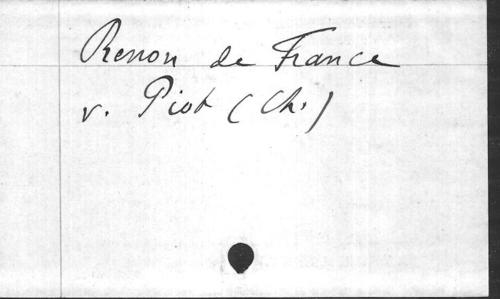 Renon de France
v. Piot (Ch.)